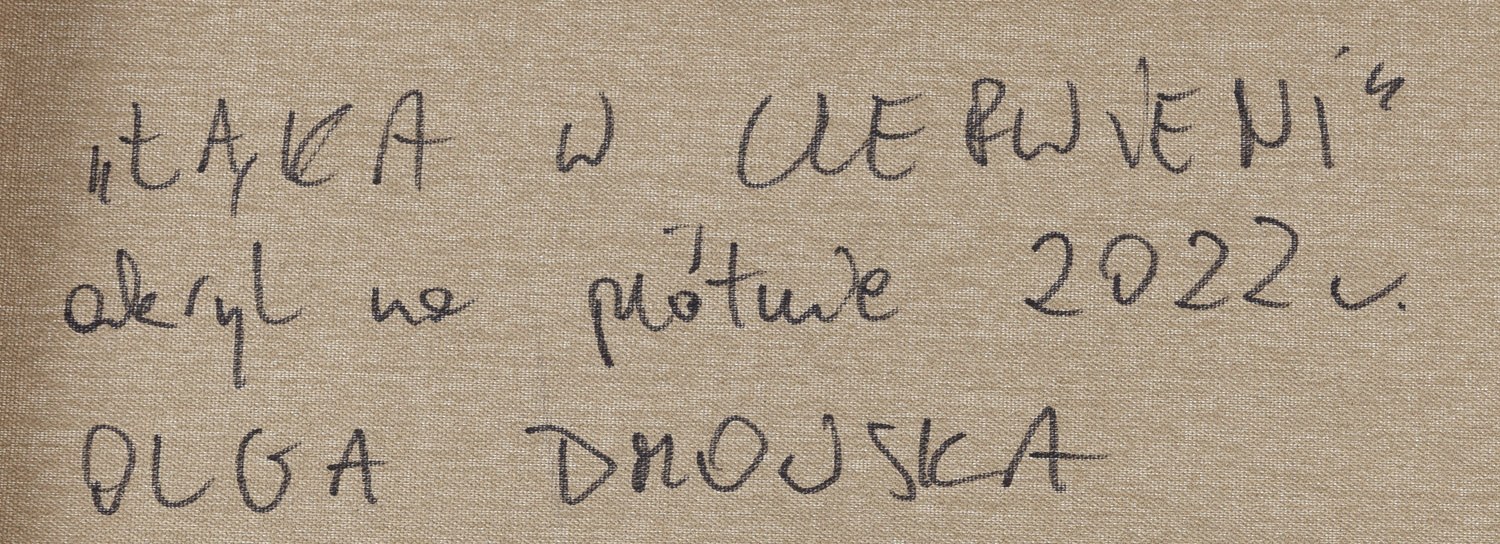 „ŁĄKA W CZERWIENI“
akryl na płótnie 2022 r.
OLGA DMOJSKA